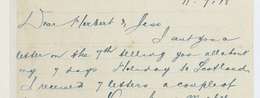 11.9.18
Dear Herbert & Jess
I sent you a
letter on the 7th telling you all about
my 7 days Holiday to Scotland
I received 7 letters a couple of